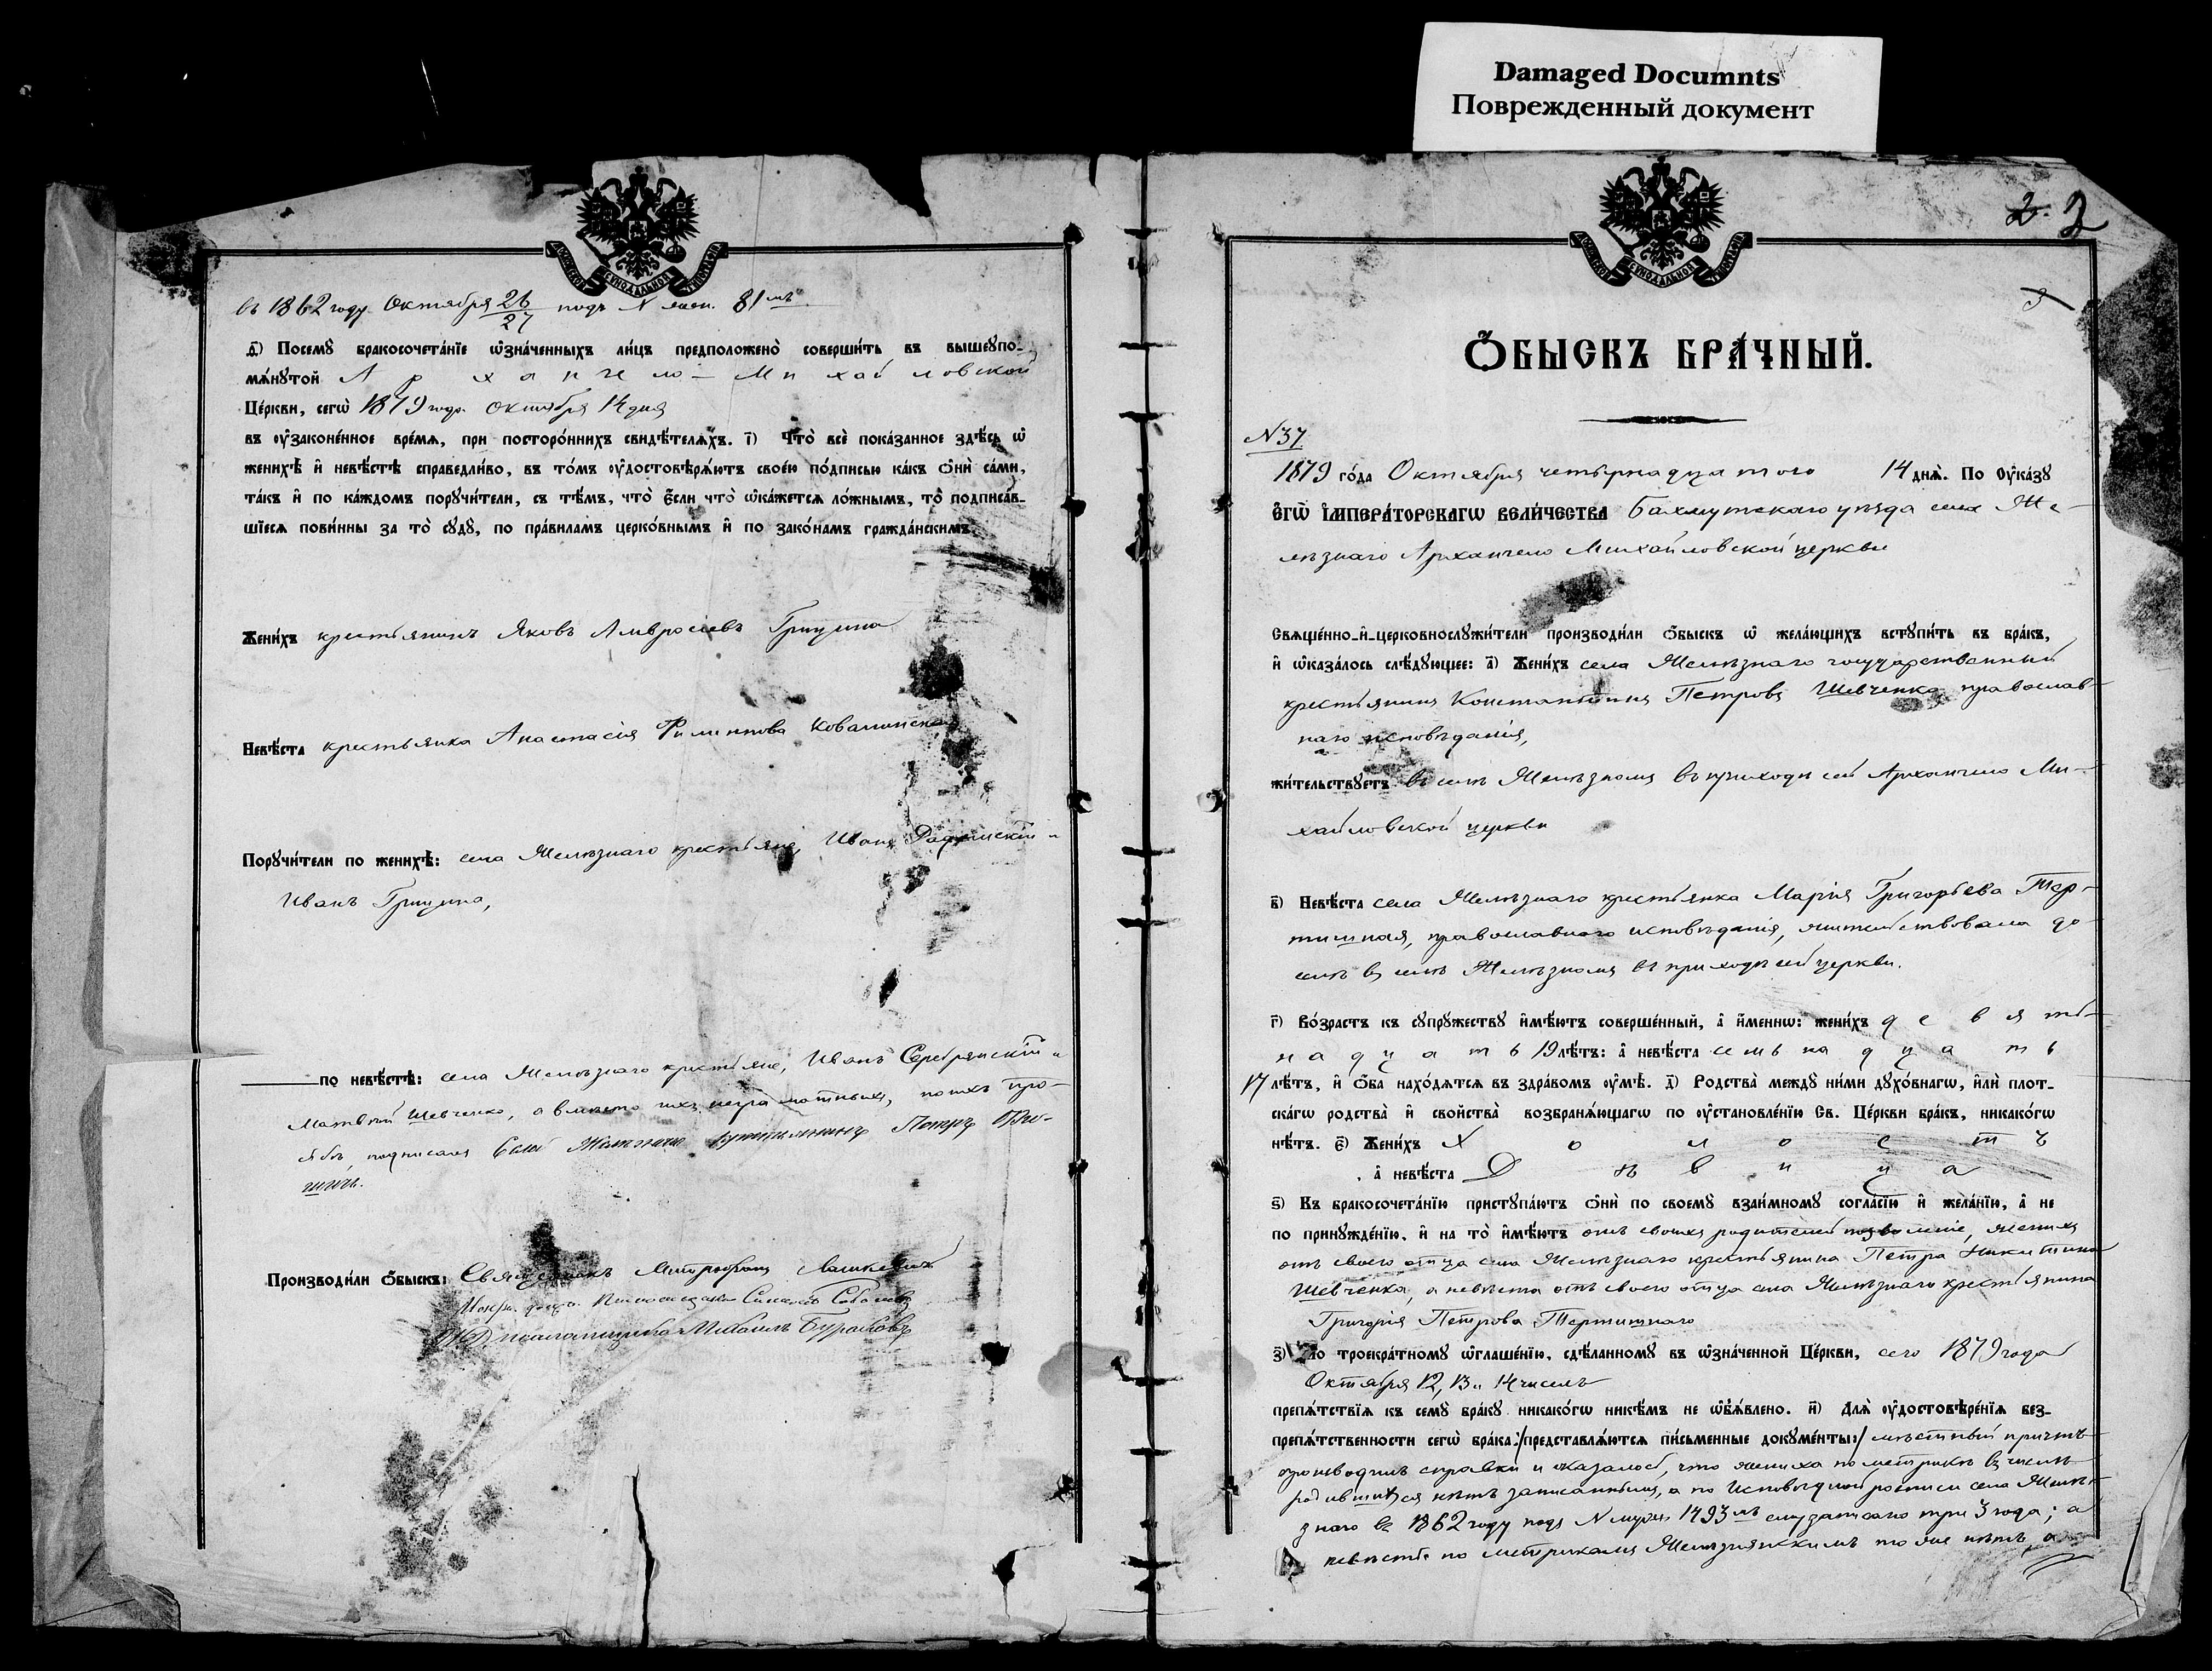 Damaged Documnts
Поврежденный документ
въ 1862 году Октября 26/27 подъ N жен. 81мъ
д҃) Посемꙋ бракосочета́нїе ѡ҆зна́ченныхъ ли́цъ предположено̀ соверши́ть въ вышеꙋпо-
мѧ́нꙋтой Архангело-Михайловской
Це́ркви, сегѡ̀ 1879 года Октября 14 дня
въ ᲂу҆законе́нное вре́мѧ, при посторо́ннихъ свидѣ́телѧхъ. і҃) Что̀ всѐ пока́занное здѣ́сь ѡ҆
женихѣ̀ и҆ невѣ́стѣ справедли́во, въ то́мъ ᲂу҆достовѣрѧ́ютъ свое́ю по́дписью ка́къ ѻ҆нѝ са́ми,
та́къ и҆ по ка́ждомъ порꙋчи́тели, съ тѣ́мъ, что̀ є҆́сли что̀ ѡ҆ка́жетсѧ ло́жнымъ, то̀ подписа́в-
шїесѧ пови́нны за то̀ сꙋдꙋ̀, по пра́виламъ церко́внымъ и҆ по зако́намъ гражда́нскимъ.
Жени́хъ крестьянинъ Яковъ Амвросіевъ Грицина
Невѣ́ста крестьянка Анастасія Филиппова Ковалинская
Порꙋчи́тели по женихѣ̀: села Желѣзнаго крестьяне, Иванъ и
Иванъ Грицина,
по невѣ́стѣ: села Желѣзнаго крестьяне, Иванъ Серебрянскій и
Матвѣй Шевченко, а вмѣсто ихъ неграмотныхъ, по ихъ про-
сьбѣ, подписался Села Желѣзнаго Петръ
Производи́ли ѻ҆́быскъ: Священникъ Митрофанъ
Псаломщикъ
И. Д. псаломщика Михаилъ Бураковъ
2. 2
3
Ѻ҆́БЫСКЪ БРА́ЧНЫЙ.
N 37
1879 го́да Октября четырнадцатого 14 днѧ̀. По Оу҆ка́зꙋ
Є҆гѡ̀ И҆мпера́торскагѡ вели́чества Бахмутскаго уѣзда села Же-
лѣзнаго Архангело Михайловской церкви
Свѧще́нно-и҆-церковнослꙋжи́тели производи́ли ѻ҆́быскъ ѡ҆ жела́ющихъ встꙋпи́ть въ бра́къ,
и҆ ѡ҆каза́лось слѣ́дꙋющее: а҃) Жени́хъ села Желѣзнаго государственный
крестьянинъ Константинъ Петровъ Шевченко православ-
наго исповѣданія,
жи́тельствꙋетъ въ селѣ Желѣзномъ въ приходѣ сей Архангело Ми-
хайловской церкви
в҃) Невѣ́ста села Желѣзнаго крестьянка Марія Григорьева Тер-
тишная, православнаго исповѣданія, жительствовала до-
селѣ въ селѣ Желѣзномъ въ приходѣ сей церкви.
г҃) Во́зрастъ къ сꙋпрꙋ́жествꙋ и҆мѣ́ютъ соверше́нный, а҆ и҆́меннѡ: жени́хъ девят-
надцать 19 лѣ́тъ: а҆ невѣ́ста семьнадцать
17 лѣ́тъ, и҆ ѻ҆́ба нахо́дѧтсѧ въ здра́вомъ ᲂу҆мѣ̀. д҃) Родства̀ междꙋ̀ ни́ми дꙋхо́внагѡ, и҆лѝ плот-
ска́гѡ родства̀ и҆ сво́йства̀ возбранѧ́ющагѡ по ᲂу҆становле́нїю Св. Це́ркви бра́къ, никако́гѡ
нѣ́тъ. є҃) Жени́хъ Холостъ
а҆ невѣ́ста Дѣвица
ѕ҃) Къ бракосочета́нїю пристꙋпа́ютъ ѻ҆нѝ по своемꙋ̀ взаи́мномꙋ согла́сїю и҆ жела́нїю, а҆ не
по принꙋжде́нїю, и҆ на то̀ и҆мѣ́ютъ отъ своихъ родителей позволеніе, женихъ
отъ своего отца села Желѣзнаго крестьянина Петра Никитина
Шевченка, а невѣста отъ своего отца села Желѣзнаго крестьянина
Григорія Петрова Тертишнаго
з҃) По троекра́тномꙋ ѡ҆глаше́нїю, сдѣ́ланномꙋ въ ѡ҆зна́ченной Це́ркви, сего 1879 года
Октября 12, 13 и 14 чиселъ
препѧ́тствїѧ къ семꙋ̀ бра́кꙋ никако́гѡ никѣ́мъ не ѡ҆б̾ѧ́влено. и҃) Длѧ̀ ᲂу҆достовѣре́нїѧ без-
препѧ́тственности сегѡ̀ бра́ка:/представлѧ́ютсѧ пи́сьменные докꙋме́нты:/ мѣстный причтъ
производилъ справки и оказалось, что жениха по метрикѣ въ числѣ
родившихся нѣтъ записаннымъ, а по Исповѣдной росписи села Желѣ-
знаго въ 1862 году подъ N муж. 1493мъ ему записано три 3 года; а
невѣсты по метрикамъ Желѣзнянскимъ тоже нѣтъ, а